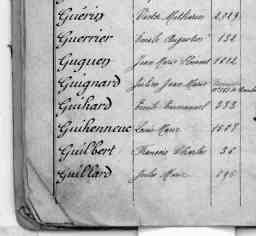 Guérin Victor Mathurin 2,929
Guerrier Emile Augustin 132
Guguen Jean Marie Clément 1022
Guignard Julien Jean Marie
Guihard Emile Emmanuel 233
Guihenneuc Louis Marie 1028
Guilbert François Charles 36
Guillard Jules Marie